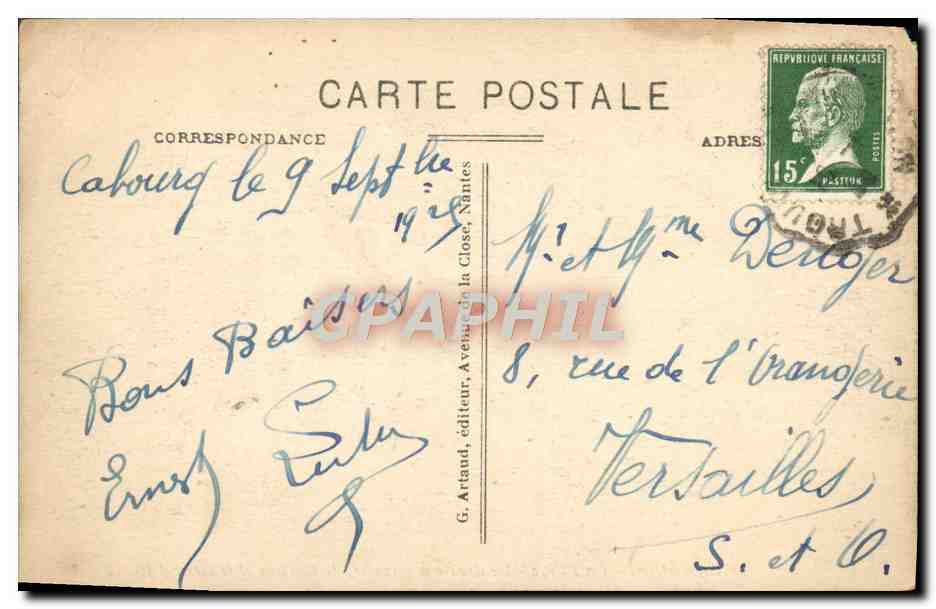 CARTE POSTALE
CORRESPONDANCE
ADRES
REPVBLIQUE FRANÇAISE
POSTES
15c
PASTEUR
TROU
Cabourg le 9 Septbre
1925
Bons Baisers
Ernest
G. Artaud, éditeur, Avenue de la Close, Nantes
CPAPHIL
Mr. et Mme
8, rue de l'Orangerie
Versailles
S. et O.